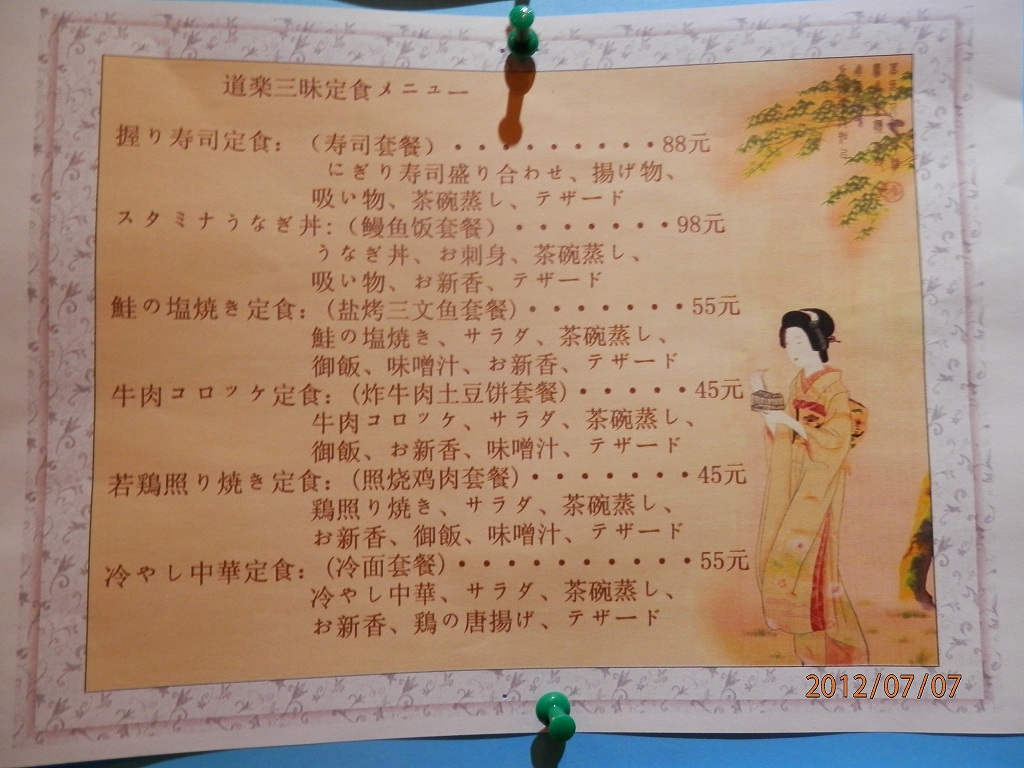 道楽三昧定食メニュー
握り寿司定食：（寿司套餐）・・・・・・・・・・88元
にぎり寿司盛り合わせ、揚げ物、
吸い物、茶碗蒸し、テザード
スタミナうなぎ丼：（鳗鱼饭套餐）・・・・・・・98元
うなぎ丼、お刺身、茶碗蒸し、
吸い物、お新香、テザード
鮭の塩焼き定食：（盐烤三文鱼套餐）・・・・・・・55元
鮭の塩焼き、サラダ、茶碗蒸し、
御飯、味噌汁、お新香、テザード
牛肉コロッケ定食：（炸牛肉土豆饼套餐）・・・・・45元
牛肉コロッケ、サラダ、茶碗蒸し、
御飯、お新香、味噌汁、テザード
若鶏照り焼き定食：（照烧鸡肉套餐）・・・・・・・45元
鶏照り焼き、サラダ、茶碗蒸し、
お新香、御飯、味噌汁、テザード
冷やし中華定食：（冷面套餐）・・・・・・・・・・55元
冷やし中華、サラダ、茶碗蒸し、
お新香、鶏の唐揚げ、テザード
2012/07/07